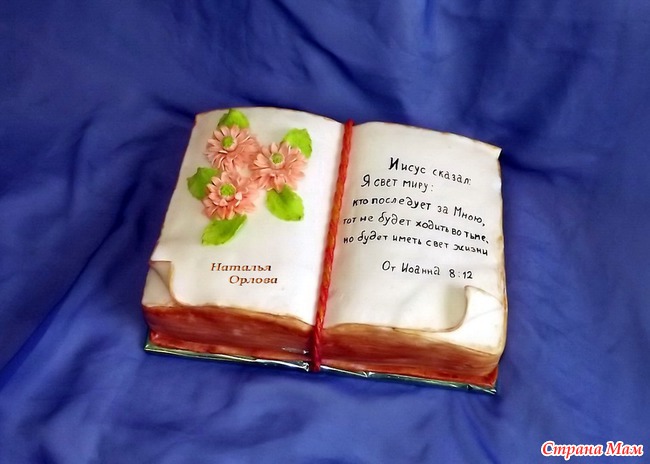 Наталья
Орлова
Иисус сказал:
Я свет миру:
кто последует за Мною,
тот не будет ходить во тьме,
но будет иметь свет жизни
От Иоанна 8:12
Страна Мам